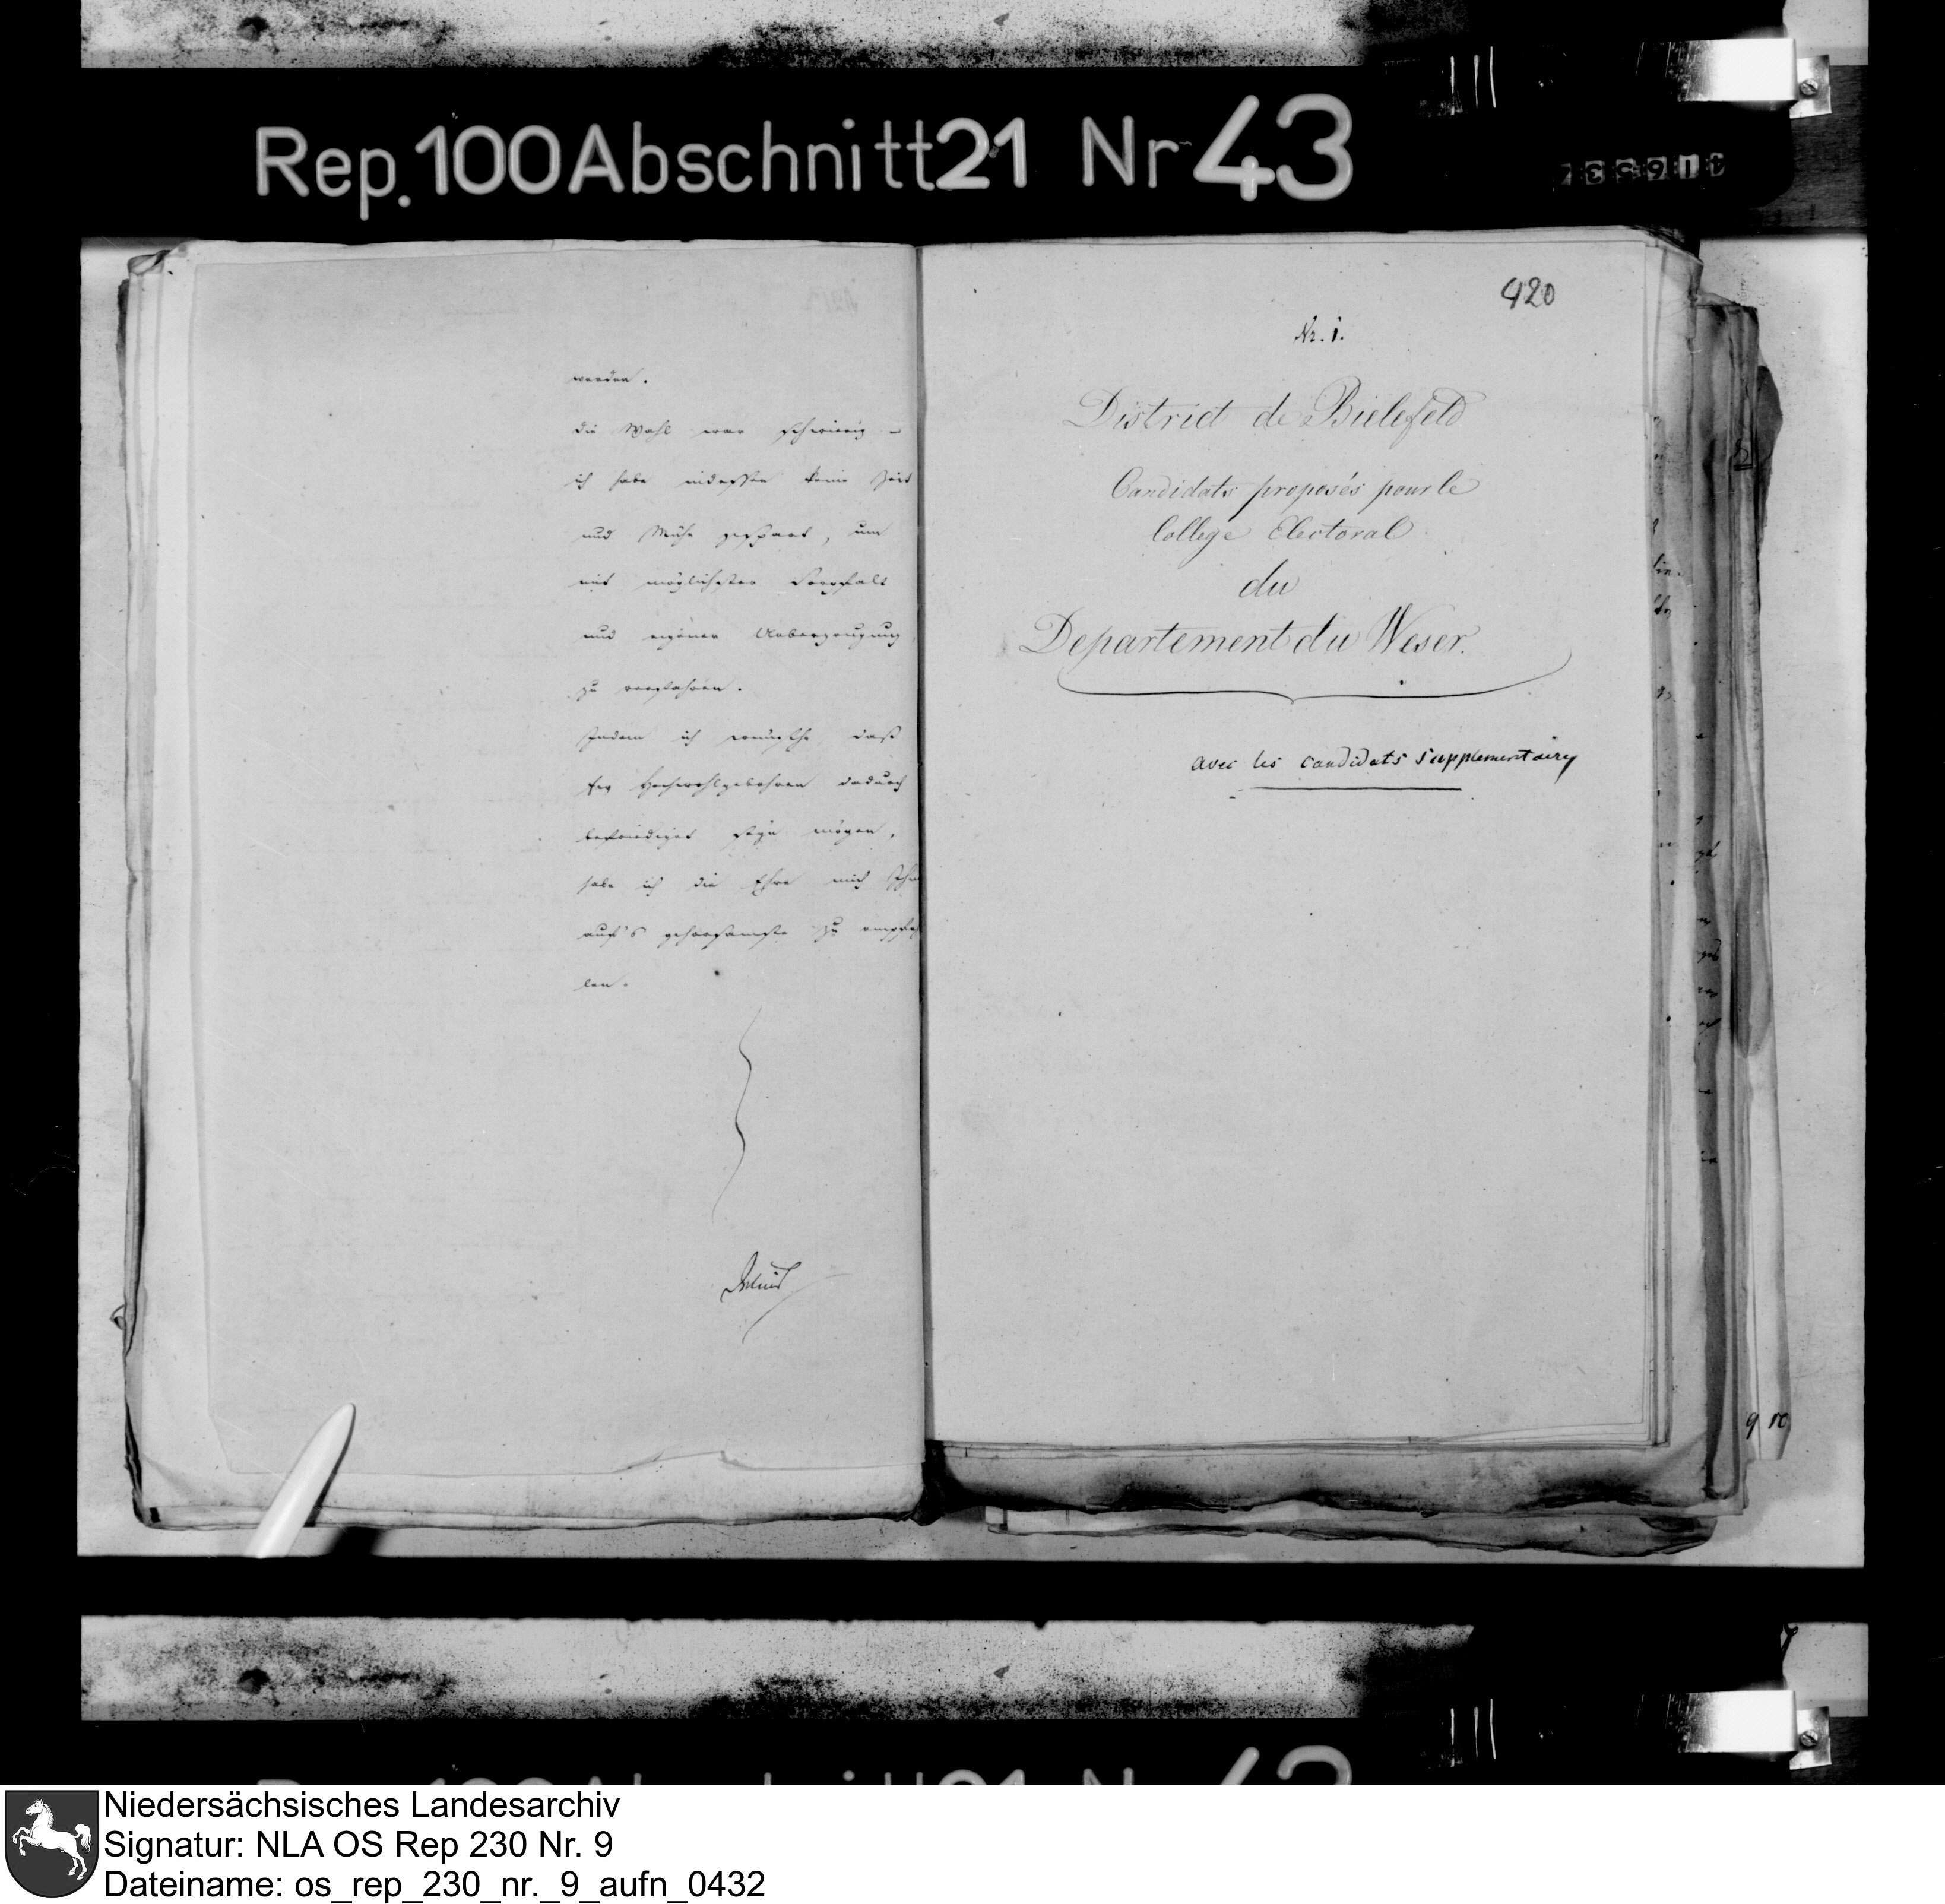 Rep. 100 Abschnitt 21 Nr 43
werden.
die Wahl war schwierig –
ich habe indessen keine Zeit
und Mühe gespart, um
mit möglichster Sorgfalt
und eigener Ueberzeugung
zu verfahren.
Indem ich wünsche, daß
Ew Hochwohlgebohren dadurch
befriediget seyn mögen,
habe ich die Ehre mich
auf's gehorsamste zu empfeh
len.
420
Nr. 1.
District de Bielefeld
Candidats proposés pour le
College Electoral
du
Departement du Weser.
avec les candidats supplementaires
9 10
Niedersächsisches Landesarchiv
Signatur: NLA OS Rep 230 Nr. 9
Dateiname: os_rep_230_nr._9_aufn_0432